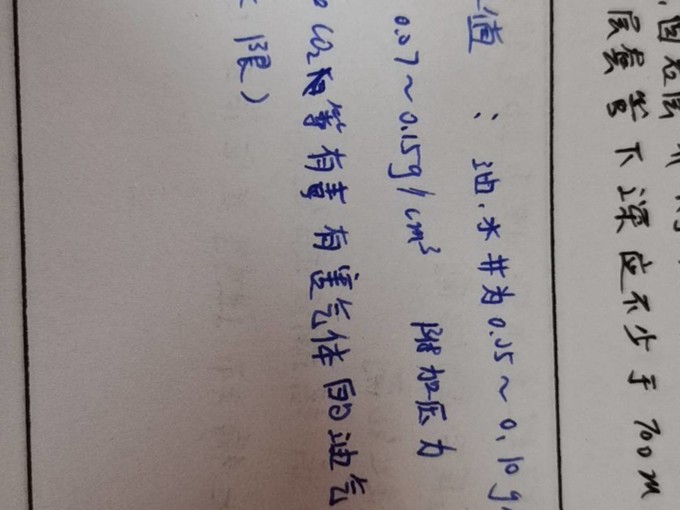 固表层
层套管下深应不少于700m
值：油.水井为0.05~0.10g
0.07~0.15g/cm³ 附加压力
CO₂等有毒有害气体的油气
限）